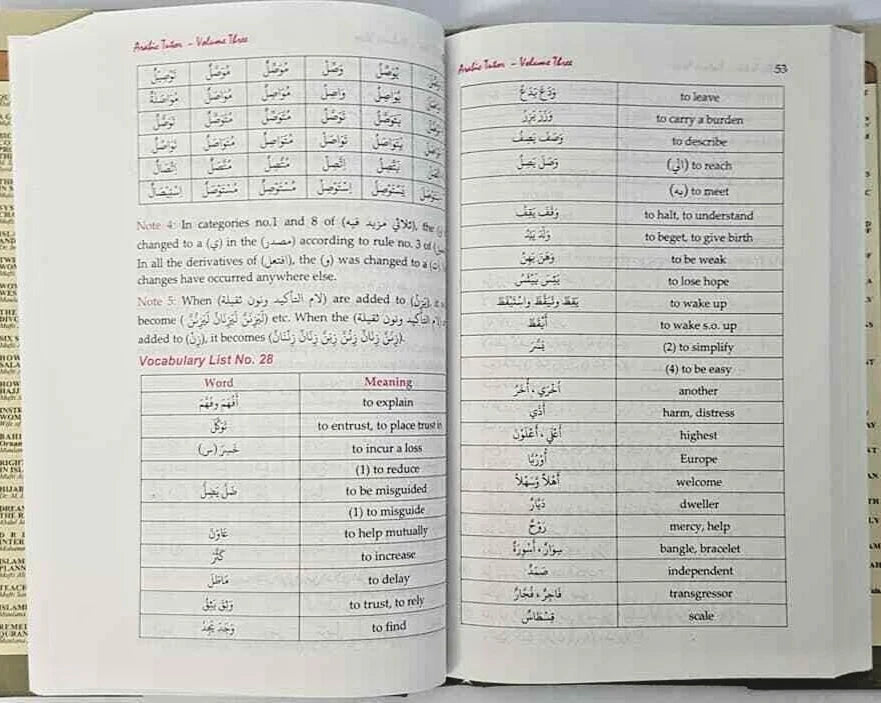 Arabic Tutor – Volume Three
يُوَصِّلُ وَصِّلْ مُوَصِّلٌ مُوَصَّلٌ تَوْصِيْلٌ
يُوَاصِلُ وَاصِلْ مُوَاصِلٌ مُوَاصَلٌ مُوَاصَلَةٌ
يَتَوَصَّلُ تَوَصَّلْ مُتَوَصِّلٌ مُتَوَصَّلٌ تَوَصُّلٌ
يَتَوَاصَلُ تَوَاصَلْ مُتَوَاصِلٌ مُتَوَاصَلٌ تَوَاصُلٌ
يَتَّصِلُ اِتَّصِلْ مُتَّصِلٌ مُتَّصَلٌ اِتِّصَالٌ
يَسْتَوْصِلُ اِسْتَوْصِلْ مُسْتَوْصِلٌ مُسْتَوْصَلٌ اِسْتِيْصَالٌ
Note 4: In categories no.1 and 8 of (ثلاثي مزيد فيه), the
changed to a (ي) in the (مصدر) according to rule no. 3 of
In all the derivatives of (افتعل), the (و) was changed to a (ت)
changes have occurred anywhere else.
Note 5: When (لام التأكيد ونون ثقيلة) are added to (يَزِنُ), it
become (لَيَزِنَنَّ لَيَزِنَانِّ لَيَزِنُنَّ) etc. When the (لام التأكيد ونون ثقيلة)
added to (زِنْ), it becomes (زِنَنَّ زِنَانِّ زِنُنَّ زِنِنَّ زِنَانِّ زِنْنَانِّ).
Vocabulary List No. 28
Word Meaning
أَفْهَمَ وفَهَّمَ to explain
تَوَكَّلَ to entrust, to place trust in
خَسِرَ (س) to incur a loss
(1) to reduce
ضَلَّ يَضِلُّ to be misguided
(1) to misguide
عَاوَنَ to help mutually
كَثَّرَ to increase
مَاطَلَ to delay
وَثِقَ يَثِقُ to trust, to rely
وَجَدَ يَجِدُ to find
Arabic Tutor – Volume Three 53
وَدَعَ يَدَعُ to leave
وَزَرَ يَزِرُ to carry a burden
وَصَفَ يَصِفُ to describe
وَصَلَ يَصِلُ (الي) to reach
(به) to meet
وَقَفَ يَقِفُ to halt, to understand
وَلَدَ يَلِدُ to beget, to give birth
وَهَنَ يَهِنُ to be weak
يَئِسَ يَيْئَسُ to lose hope
يَقِظَ وتَيَقَّظَ واسْتَيْقَظَ to wake up
أَيْقَظَ to wake s.o. up
يَسَّرَ (2) to simplify
(4) to be easy
أُخْرَي ، أُخَرُ another
أَذَي harm, distress
أَعْلَي ، أَعْلَوْنَ highest
أُوْرُبَّا Europe
أَهْلاً وَسَهْلاً welcome
دَيَّارٌ dweller
رَوْحٌ mercy, help
سِوَارٌ ، أَسْوِرَةٌ bangle, bracelet
صَمَدٌ independent
فَاجِرٌ ، فُجَّارٌ transgressor
قِسْطَاسٌ scale